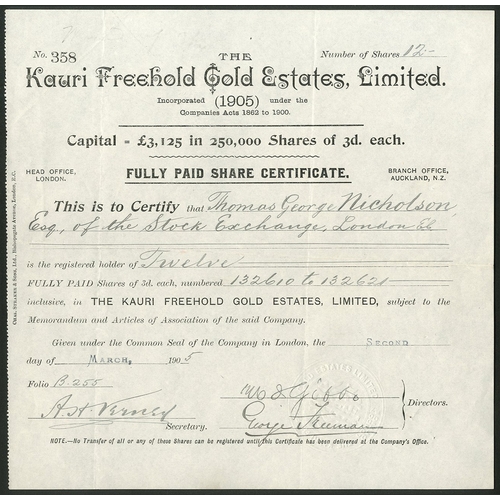 No. 358
THE
Number of Shares 12:-
Kauri Freehold Gold Estates, Limited.
Incorporated (1905) under the
Companies Acts 1862 to 1900.
Capital = £3,125 in 250,000 Shares of 3d. each.
HEAD OFFICE,
LONDON.
FULLY PAID SHARE CERTIFICATE.
BRANCH OFFICE,
AUCKLAND, N.Z.
This is to Certify that Thomas George Nicholson
Esq, of the Stock Exchange, London EC
is the registered holder of Twelve
FULLY PAID Shares of 3d. each, numbered 132610 to 132621
inclusive, in THE KAURI FREEHOLD GOLD ESTATES, LIMITED, subject to the
Memorandum and Articles of Association of the said Company.
Given under the Common Seal of the Company in London, the SECOND
day of MARCH, 1905
Folio B.255
Directors.
Secretary.
George Freeman
NOTE.—No Transfer of all or any of these Shares can be registered until this Certificate has been delivered at the Company's Office.